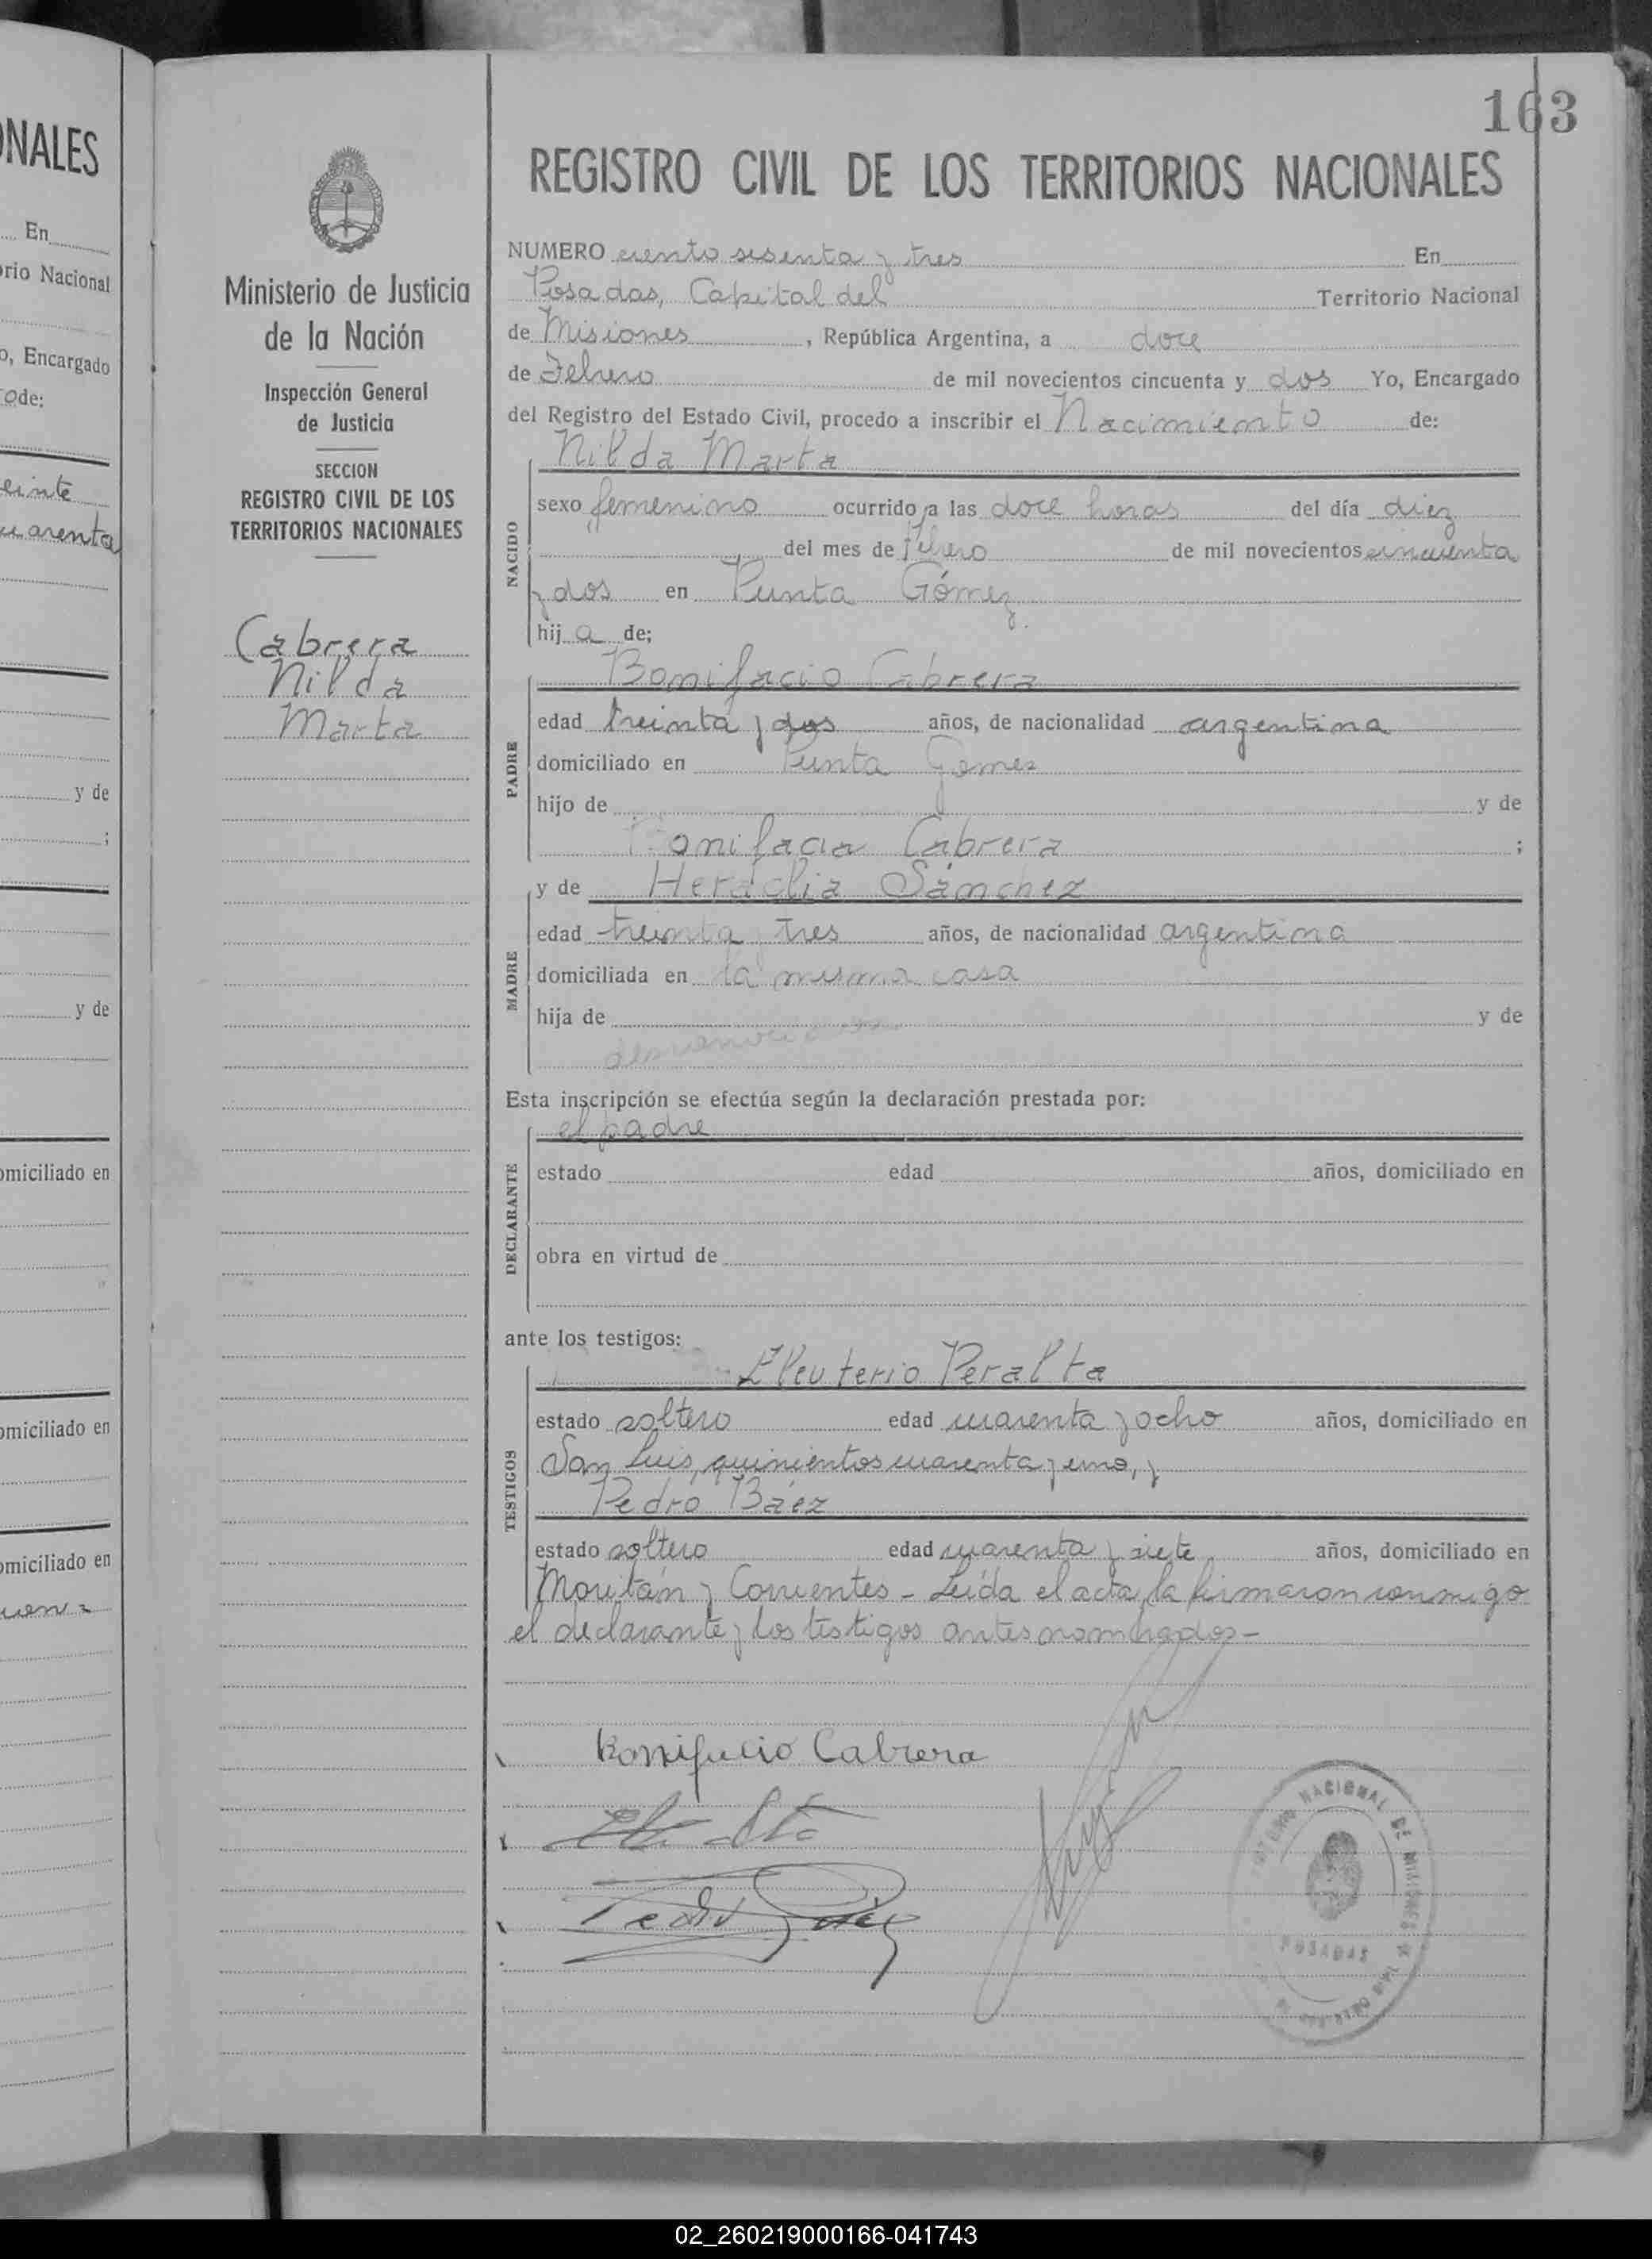 NALES
En
rio Nacional
o, Encargado
de:
einte
uarenta
y de
;
y de
omiciliado en
omiciliado en
omiciliado en
163
Ministerio de Justicia
de la Nación
Inspección General
de Justicia
SECCION
REGISTRO CIVIL DE LOS
TERRITORIOS NACIONALES
Cabrera
Nilda
Marta
REGISTRO CIVIL DE LOS TERRITORIOS NACIONALES
NUMERO ciento sesenta y tres En
Posadas, Capital del Territorio Nacional
de Misiones, República Argentina, a doce
de Febrero de mil novecientos cincuenta y dos Yo, Encargado
del Registro del Estado Civil, procedo a inscribir el Nacimiento de:
Nilda Marta
NACIDO
sexo femenino ocurrido a las doce horas del día diez
del mes de febrero de mil novecientos cincuenta
y dos en Punta Gómez
hija de;
Bonifacio Cabrera
PADRE
edad treinta y dos años, de nacionalidad argentina
domiciliado en Punta Gomez
hijo de y de
Bonifacia Cabrera ;
y de Heraclia Sánchez
MADRE
edad treinta y tres años, de nacionalidad argentina
domiciliada en la misma casa
hija de y de
Esta inscripción se efectúa según la declaración prestada por:
el padre
DECLARANTE
estado edad años, domiciliado en
obra en virtud de
ante los testigos:
Eleuterio Peralta
TESTIGOS
estado soltero edad cuarenta y ocho años, domiciliado en
San Luis, quinientos cuarenta y uno, y
Pedro Báez
estado soltero edad cuarenta y siete años, domiciliado en
Moritán y Corrientes - Leída el acta, la firmaron conmigo
el declarante y los testigos antes nombrados-
Bonifacio Cabrera
Pedro Báez
NACIONAL DE MISIONES
POSADAS
02_260219000166-041743